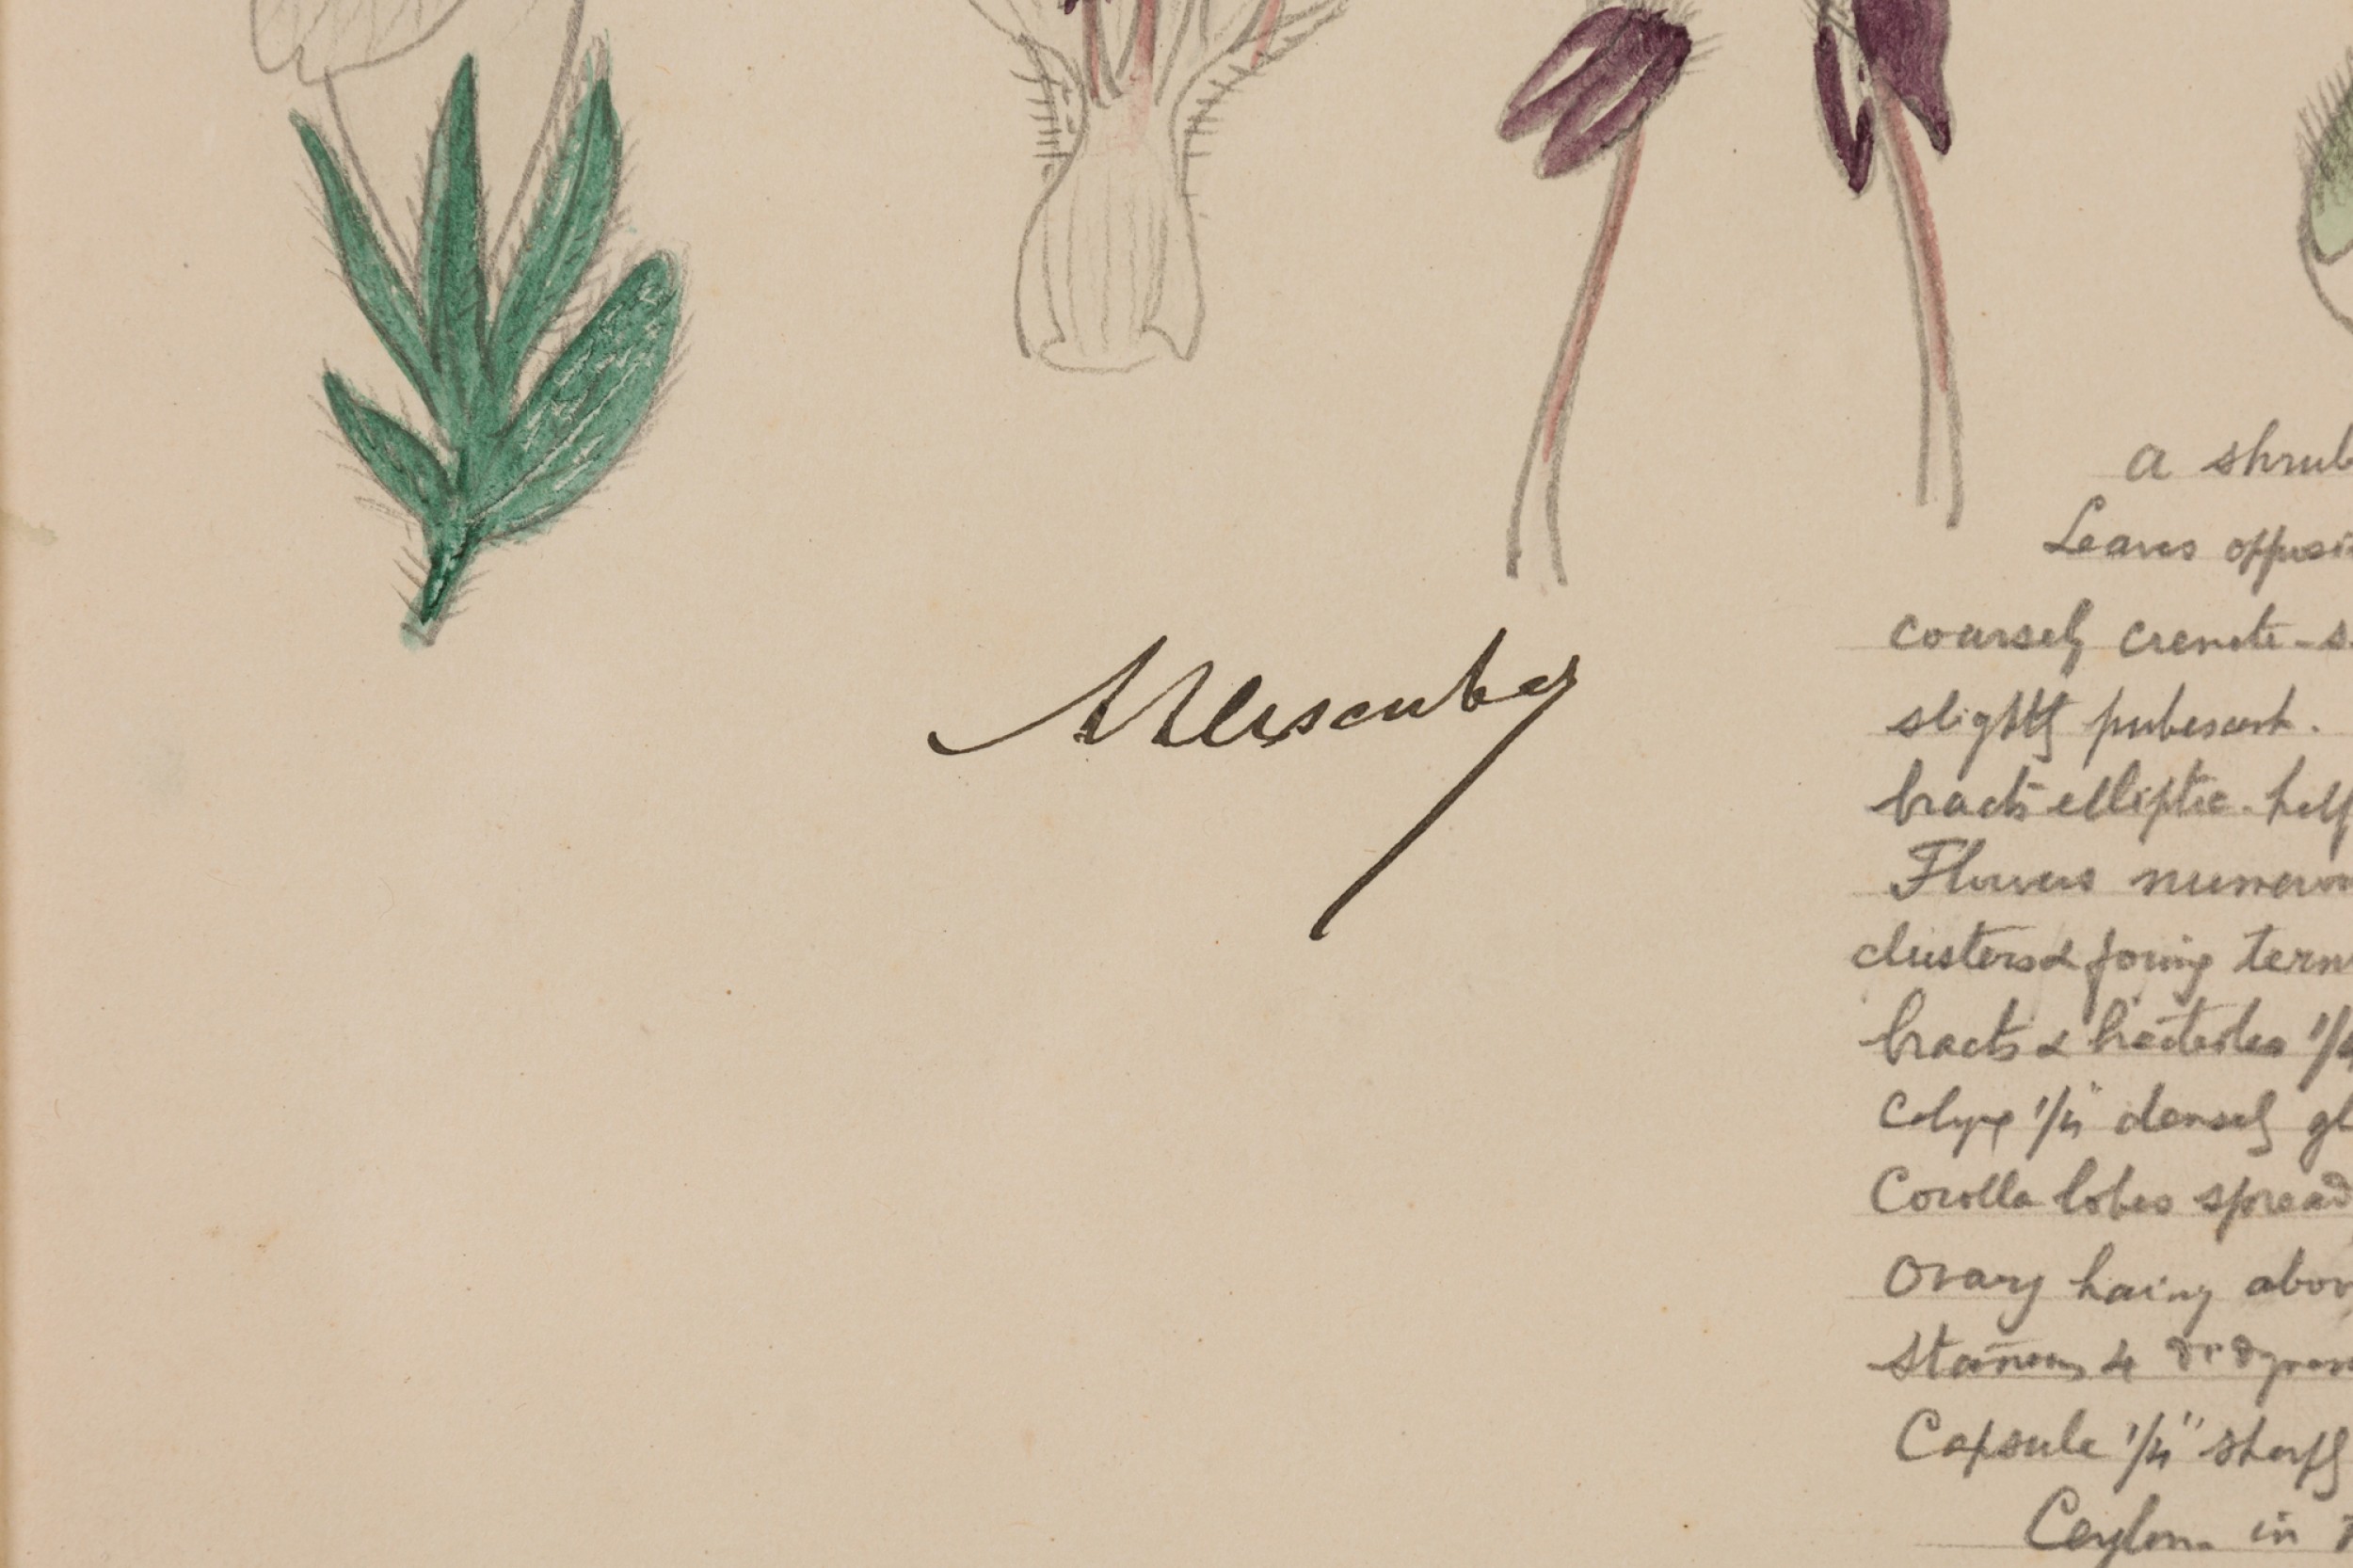 a shrub
Leaves opposi
coarsely crenate-s
slightly pubescent.
bracts elliptic. half
Flowers numerou
clusters & foring term
bracts & bracteoles 1/4
Calyx 1/4" densely gl
Corolla lobes spread
Ovary haing abov
Stamens 4 didynam
Capsule 1/4" sharply
Ceylon. in